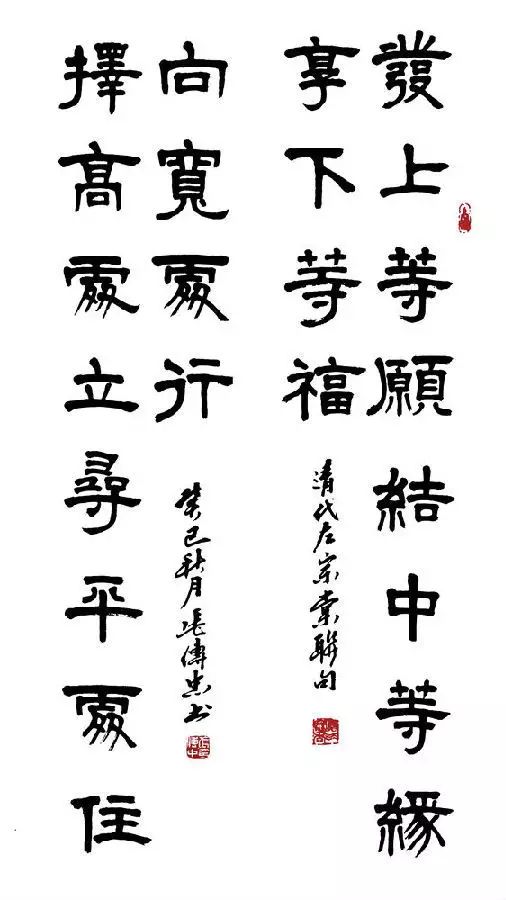 發上等願結中等緣
享下等福
清代左宗棠聯句
擇高處立尋平處住
向寬處行
癸巳秋月張傳忠書